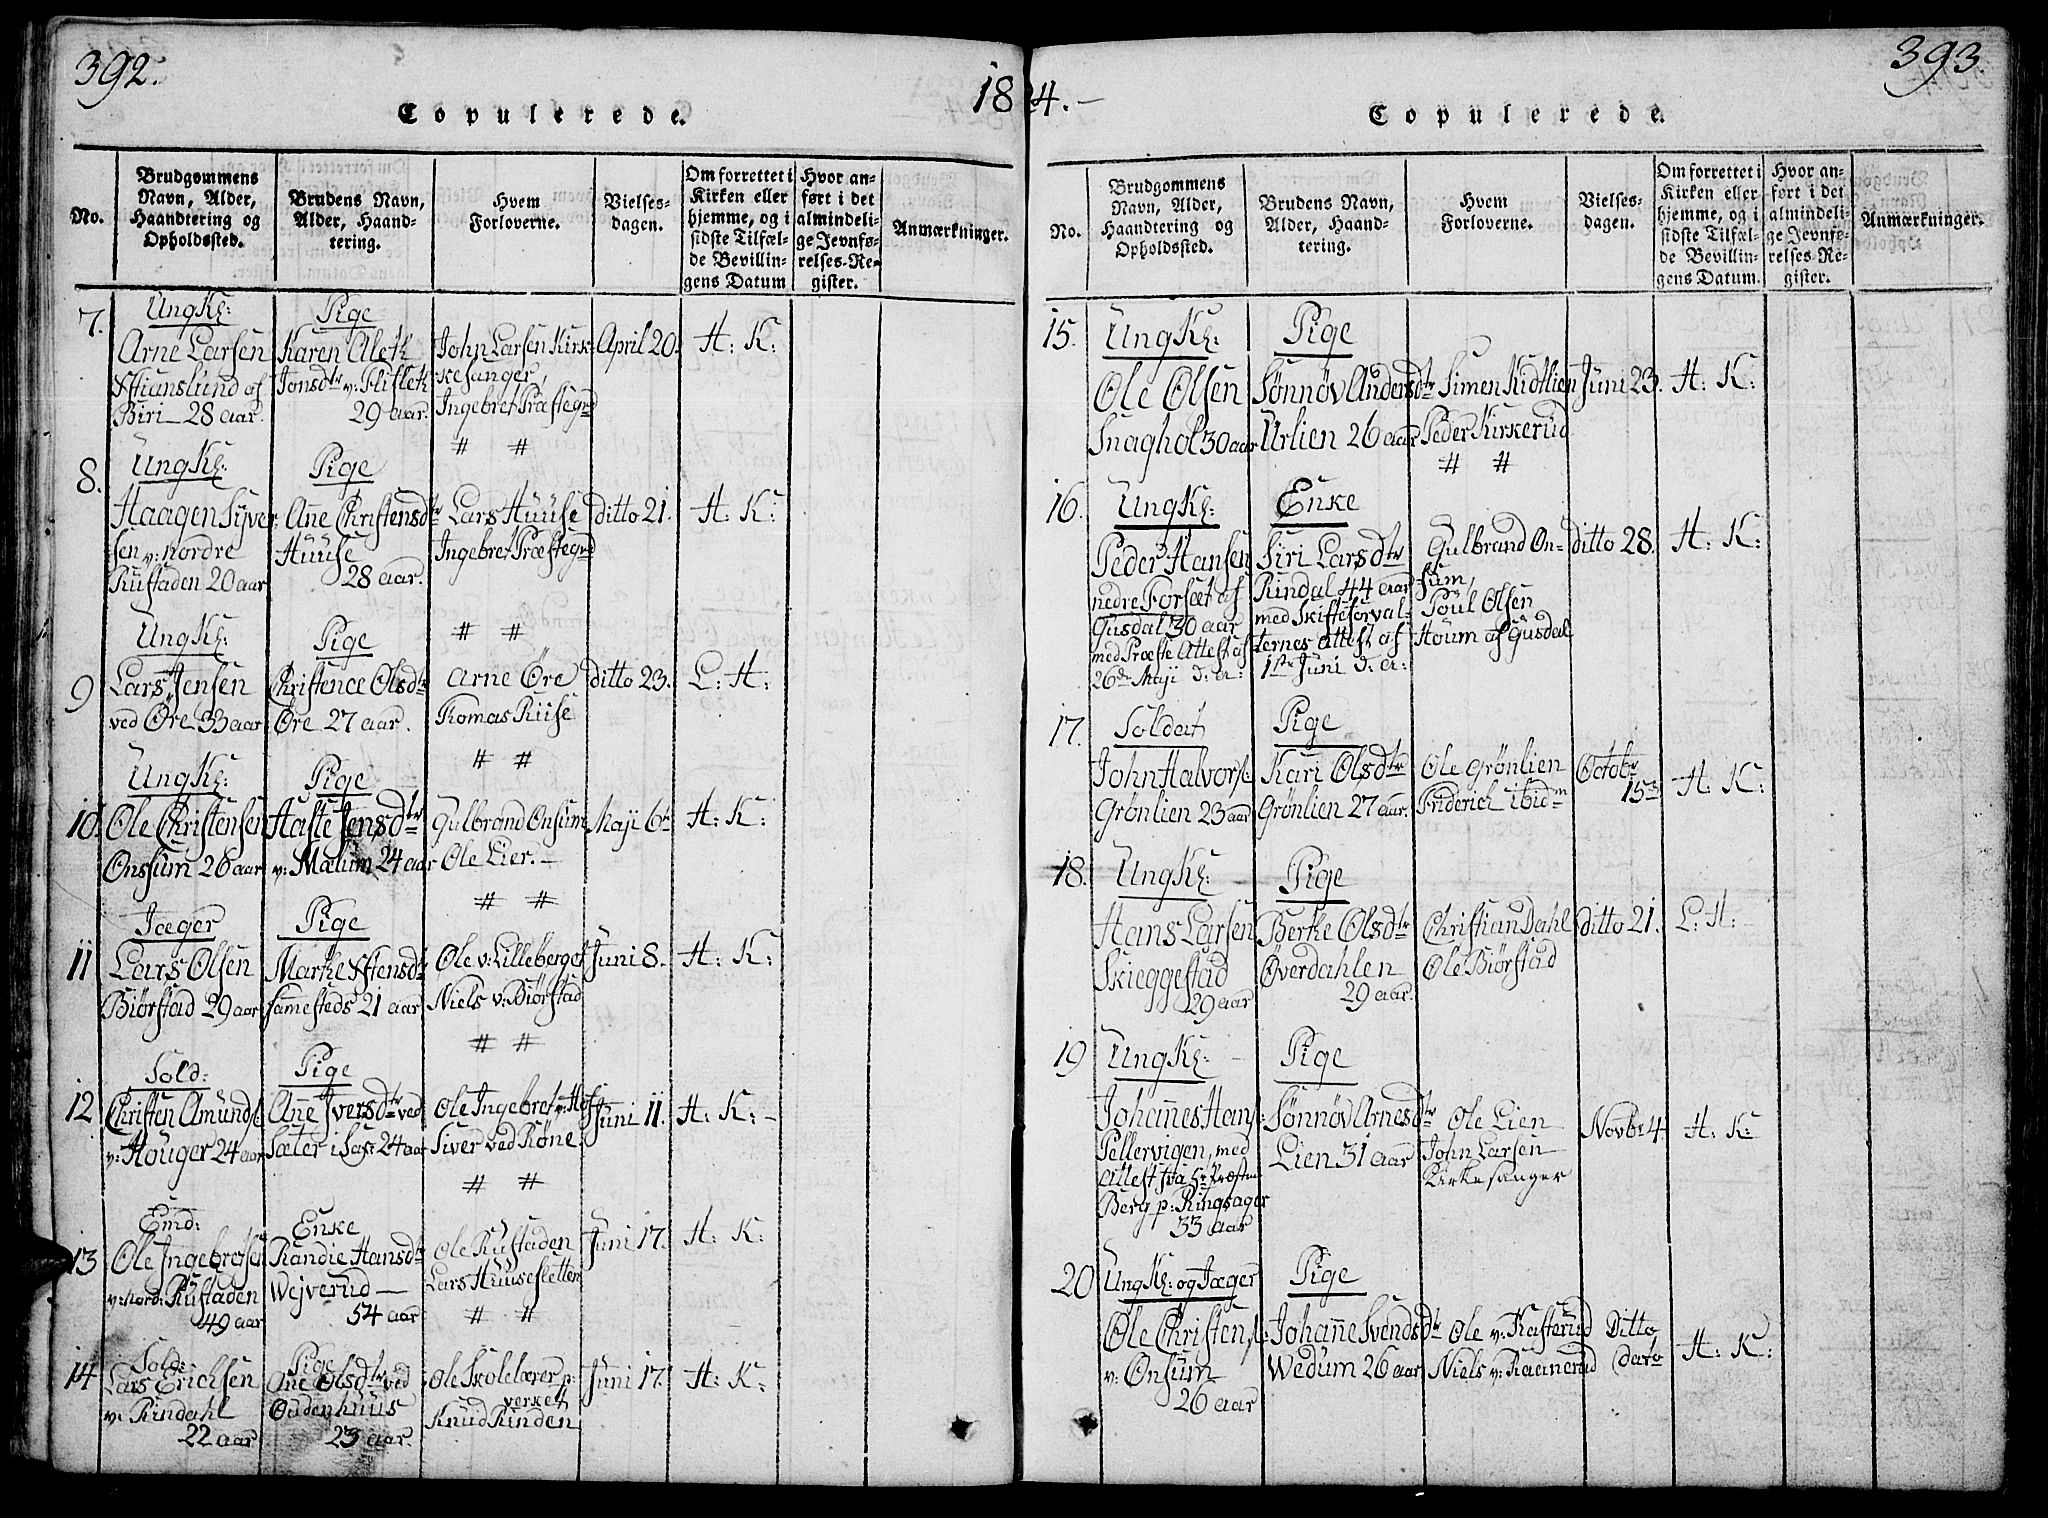 392.
1824.
393.
Copulerede.
No.
Brudgommens Navn, Alder, Haandtering og Opholdssted.
Brudens Navn, Alder, Haandtering.
Hvem Forloverne.
Vielsesdagen.
Om forrettet i Kirken eller hjemme, og i sidste Tilfælde Bevillingens Datum
Hvor anført i det almindelige Jevnførelses-Register.
Anmærkninger.
7.
UngK:
Arne Larsen
Xstianslund af
Biri 28 aar.
Pige
Karen Aleth
Jonsdtr v: Flifleth
29 aar.
John Larsen Kirk-
kesanger,
Ingebret Præstegrd
# #
April 20.
H: K:
8.
UngK:
Haagen Syver-
sen v: nordre
Rustaden 20 aar
Pige
Anne Christensdtr
Huuse
28 aar.
Lars Huuse
Ingebret Præstegrd
# #
ditto 21.
H: K:
9
UngK:
Lars Jensen
ved Øre 33 aar
Pige
Christence Olsdtr
Øre 27 aar.
Arne Øre
Tomas Riise
# #
ditto 23.
L: H:
10.
UngK:
Ole Christensen
Onsum 26 aar
Pige
Haste Jensdtr
v: Malum 24 aar
Gulbrand Onsum
Ole Lier.
# #
Maji 6te
H: K:
11
Jæger
Lars Olsen
Biørstad 29 aar
Pige
Marthe Xstensdtr
sammesteds 21 aar
Ole v: Lilleberget
Niels v: Biørstad
# #
Juni 8.
H: K:
12
Sold:
Christen Amunds:
v: Houger 24 aar
Pige
Anne Iversdtr ved
Sæter i 24 aar
Ole Ingebret v: Hof
Siver ved Røne
# #
Juni 11.
H: K:
13
Emd:
Ole Ingebretsen
v: nord: Rustaden
49 aar
Enke
Randie Hansdtr
Wejverud
54 aar
Ole Rustaden
Lars Huusesletten
# #
Juni 17.
H: K:
14
Sold:
Lars Erichsen
v: Rindahl
22 aar
Pige
Ane Olsdtr ved
Oudenhuus
23 aar.
Ole Skolelærer p:
verket
Knud Rinden
Juni 17.
H: K:
Copulerede.
No.
Brudgommens Navn, Alder, Haandtering og Opholdssted.
Brudens Navn, Alder, Haandtering.
Hvem Forloverne.
Vielsesdagen.
Om forrettet i Kirken eller hjemme, og i sidste Tilfælde Bevillingens Datum.
Hvor anført i det almindelige Jevnførelses-Register.
Anmærkninger.
15.
UngK:
Ole Olsen
Snaghol 30 aar
Pige
Sønnøv Andersdtr
Urlien 26 aar
Simen Kidtlien
Peder Kirkerud
# #
Juni 23.
H: K:
16.
UngK:
Peder Hansen
nedre Forsæt af
Gusdal 30 aar
med Præste Attest af
26de Maji d: A:
Enke
Siri Larsdtr
Rindal 44 aar
med Skifteforval-
ternes Attest af
1ste Juni d: A:
Gulbrand On-
sum,
Poul Olsen
Houm af Gusdal
ditto 28.
H: K:
17.
Soldat
John Halvors:
Grönlien 23 aar
Pige
Kari Olsdtr
Grönlien 27 aar.
Ole Grönlien
Friderich ibidm
Octobr
15de
H: K:
18.
UngK:
Hans Larsen
Skieggestad
29 aar
Pige
Berthe Olsdtr
Øverdahlen
29 aar.
Christian Dahl
Ole Biørstad
ditto 21.
L: H:
19
UngK:
Johannes Hans:
Pellervigen, med
Attest fra Hr Præsten
Berg p: Ringsager
33 aar
Pige
Sønnøv Arnesdtr
Lien 31 aar
Ole Lien
John Larsen
Kirkesanger
Novbr 4.
H: K:
20
UngK: og Jæger
Ole Christens:
v: Onsum
26 aar
Pige
Johanne Svendsdtr
Wedum 26 aar
Ole v: Kasterud
Niels v: Raanerud
Ditto
dato
H: K: